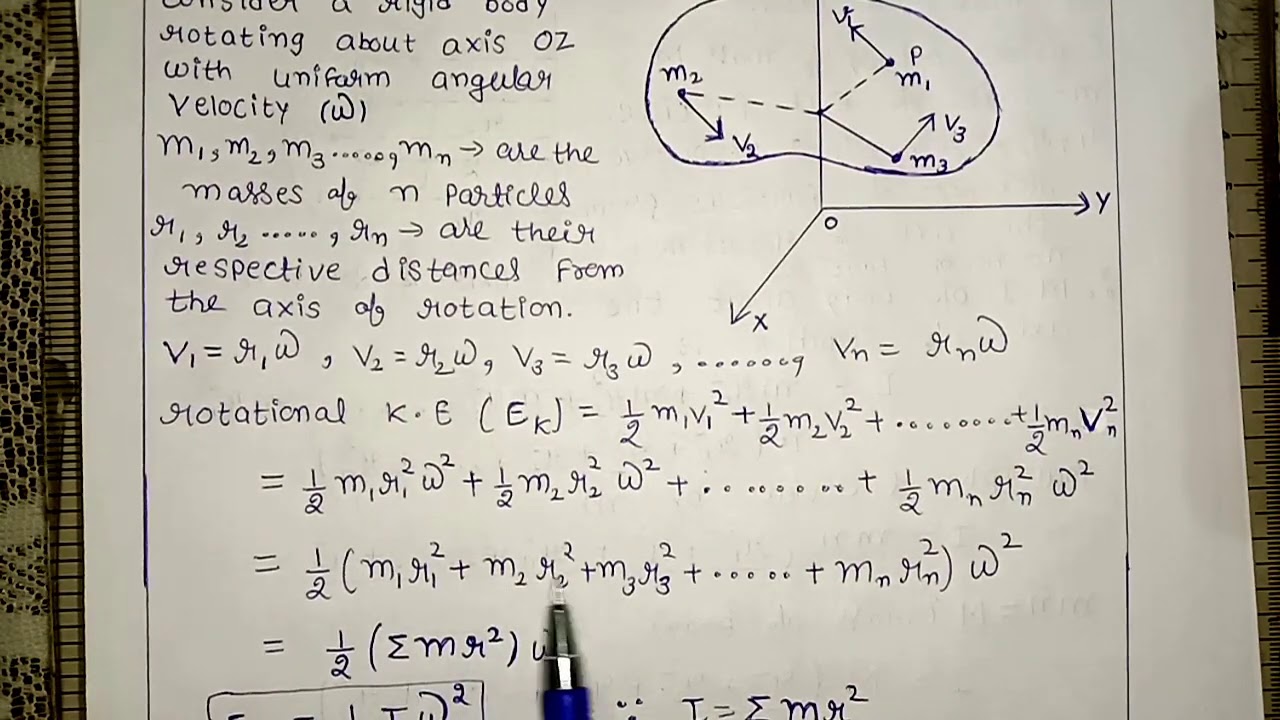 consider a rigid body
rotating about axis OZ
with uniform angular
velocity (ω)
m₁, m₂, m₃ ......, mₙ → are the
masses of n particles
r₁, r₂ ......, rₙ → are their
respective distances from
the axis of rotation.
V₁
P
m₁
m₂
V₂
V₃
m₃
Y
O
X
V₁ = r₁ω, V₂ = r₂ω, V₃ = r₃ω, ......., Vₙ = rₙω
rotational K.E (E_K) = ½ m₁v₁² + ½ m₂v₂² + ......... + ½ mₙVₙ²
= ½ m₁r₁²ω² + ½ m₂r₂² ω² + ......... + ½ mₙ rₙ² ω²
= ½ (m₁r₁² + m₂r₂² + m₃r₃² + ..... + mₙrₙ²) ω²
= ½ (Σmr²) ω
½ I ω² ∵ I = Σmr²